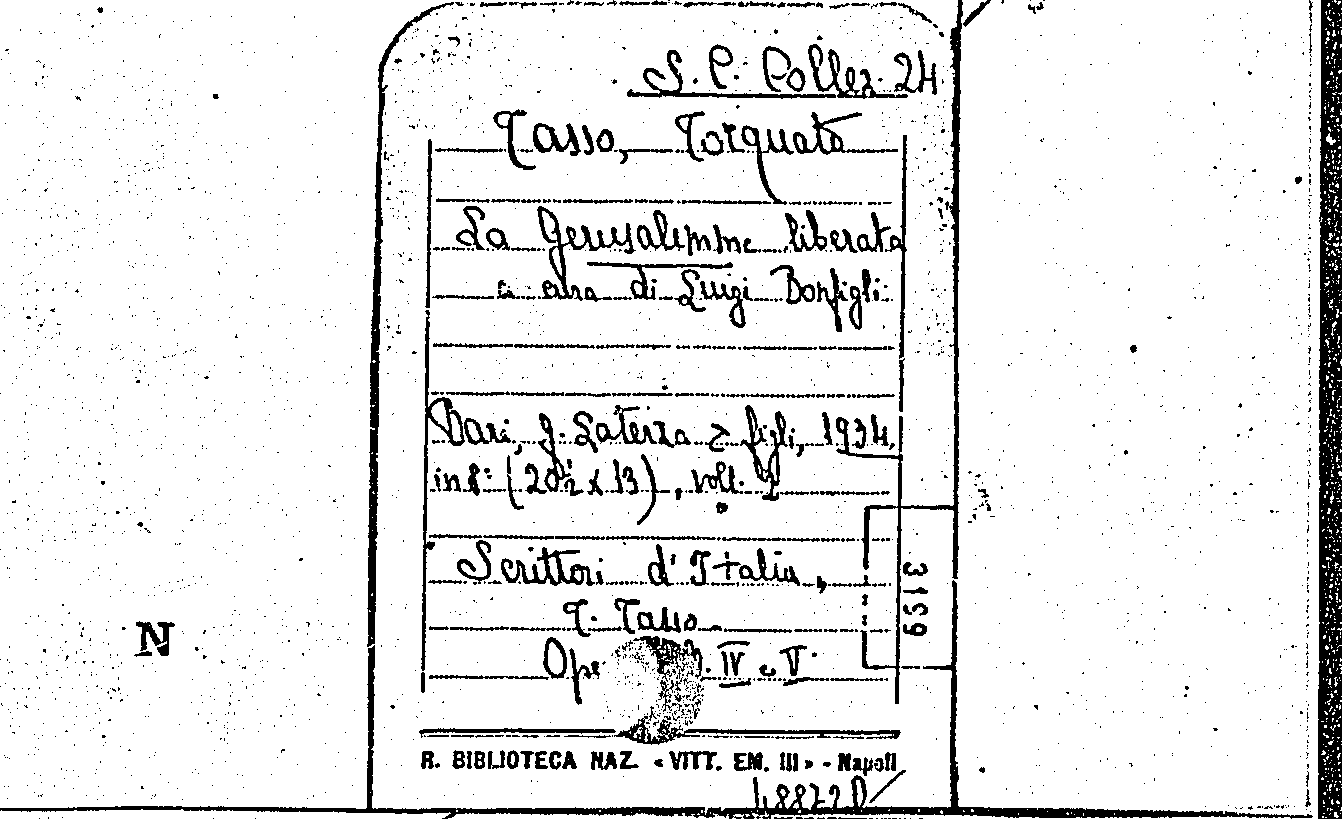 S. C. Collez. 24
Tasso, Torquato
La Gerusalemme liberata
a cura di Luigi Bonfigli
Bari, G. Laterza e figli, 1934,
in 8° (20½ x 13), voll. 2
Scrittori d'Italia,
T. Tasso.
3159
IV e V.
N
R. BIBLIOTECA NAZ. «VITT. EM. III» - Napoli